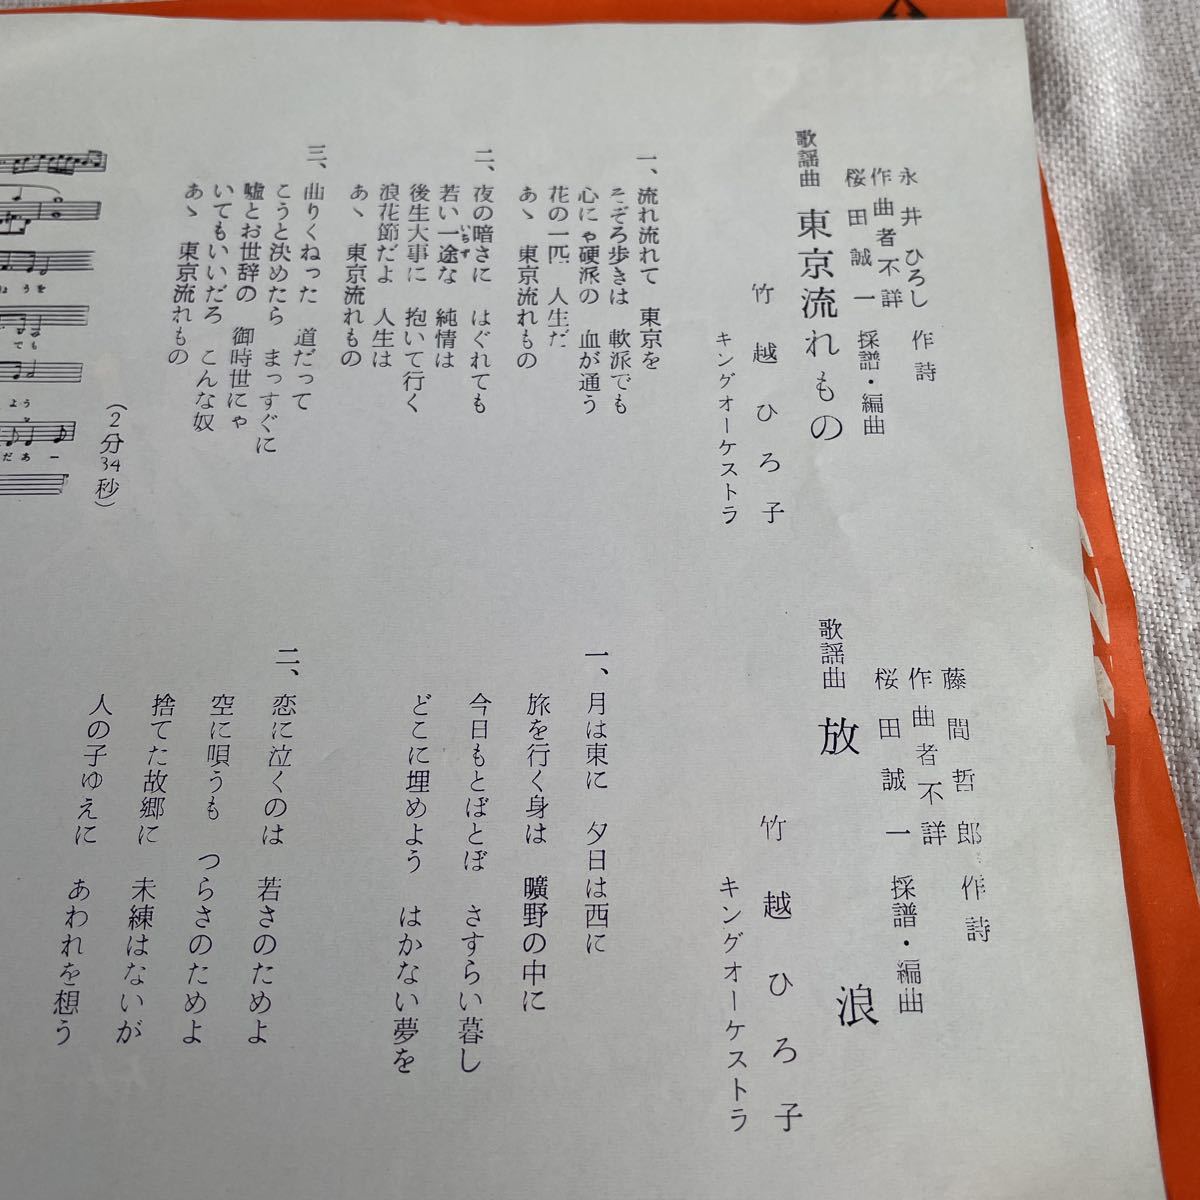 永井ひろし 作詩
作曲者不詳
桜田誠一 採譜・編曲
歌謡曲 東京流れもの
竹越ひろ子
キングオーケストラ
一、流れ流れて 東京を
そぞろ歩きは 軟派でも
心にゃ硬派の 血が通う
花の一匹 人生だ
あゝ 東京流れもの
二、夜の暗さに はぐれても
若い一途な 純情は
いちず
後生大事に 抱いて行く
浪花節だよ 人生は
あゝ 東京流れもの
三、曲りくねった 道だって
こうと決めたら まっすぐに
嘘とお世辞の 御時世にゃ
いてもいいだろ こんな奴
あゝ 東京流れもの
(2分34秒)
ょうを
ても
よう
だあー
藤間哲郎 作詩
作曲者不詳
桜田誠一 採譜・編曲
歌謡曲 放浪
竹越ひろ子
キングオーケストラ
一、月は東に 夕日は西に
旅を行く身は 曠野の中に
今日もとぼとぼ さすらい暮し
どこに埋めよう はかない夢を
二、恋に泣くのは 若さのためよ
空に唄うも つらさのためよ
捨てた故郷に 未練はないが
人の子ゆえに あわれを想う